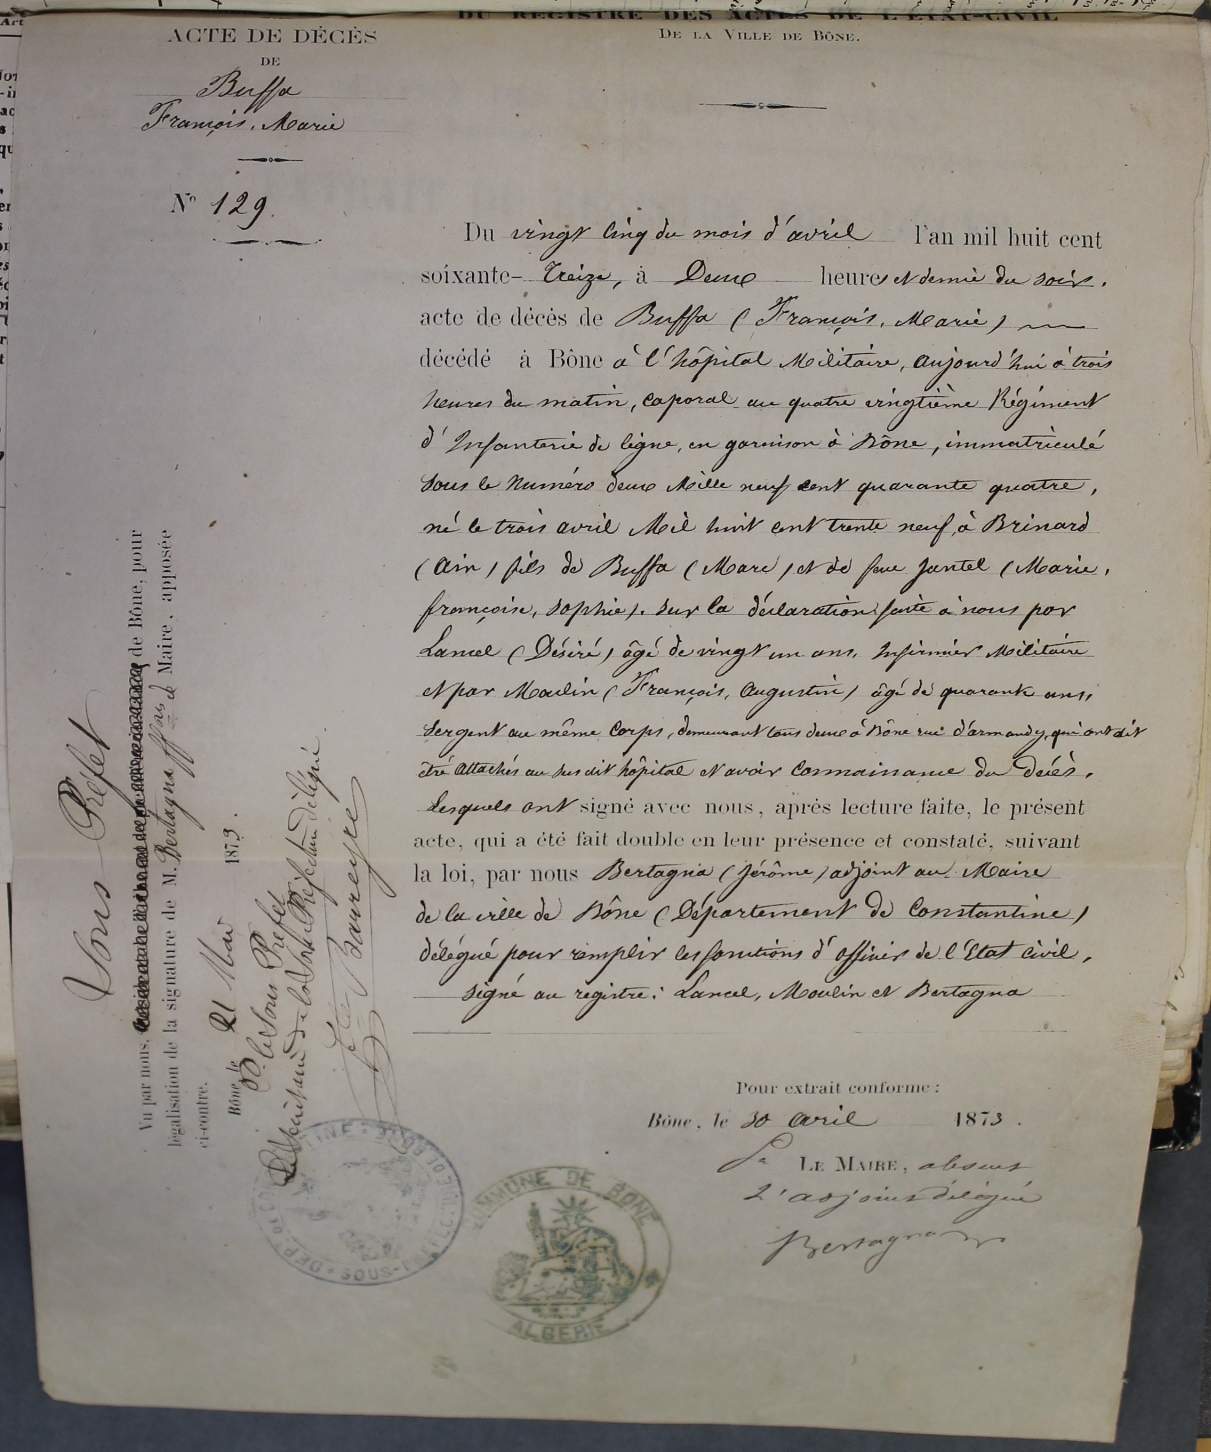 DU REGISTRE DES ACTES DE L'ÉTAT-CIVIL
DE LA VILLE DE BÔNE.
ACTE DE DÉCÉS
DE
Buffa
François, Marie
N° 129.
Du vingt cinq du mois d'avril l'an mil huit cent
soixante-treize, à Deux heures et demie du soir.
acte de décès de Buffa (François, Marie)
décédé à Bône à l'hôpital Militaire, aujourd'hui à trois
heures du matin, caporal au quatre vingtième Régiment
d'Infanterie de ligne, en garnison à Bône, immatriculé
sous le Numéro deux Mille neuf cent quarante quatre,
né le trois avril Mil huit cent trente neuf, à Brinard
(Ain) fils de Buffa (Marc) et de feue Jantel (Marie,
françoise, Sophie). Sur la déclaration faite à nous par
Lancel (Désiré) âgé de vingt un ans, Infirmier Militaire
et par Moulin (François, Augustin) âgé de quarante ans,
Sergent au même Corps, demeurant tous deux à Bône rue d'armandy, qui ont dit
être attachés au susdit hôpital et avoir connaissance du décès.
Lesquels ont signé avec nous, après lecture faite, le présent
acte, qui a été fait double en leur présence et constaté, suivant
la loi, par nous Bertagna (Jérôme) adjoint au Maire
de la ville de Bône (Département de Constantine)
délégué pour remplir les fonctions d'officier de l'État civil.
Signé au registre: Lancel, Moulin et Bertagna
Pour extrait conforme:
Bône, le 30 avril 1873.
Pr LE MAIRE, absent
L'adjoint délégué
Bertagna
COMMUNE DE BÔNE
ALGÉRIE
Sous-Préfet
Vu par nous, de Bône, pour
légalisation de la signature de M. Bertagna ff ons de Maire, apposée
ci-contre.
Bône, le 21 Mai 1873.
P. le Sous Préfet
Le Secrétaire de la Sous Préfecture délégué.